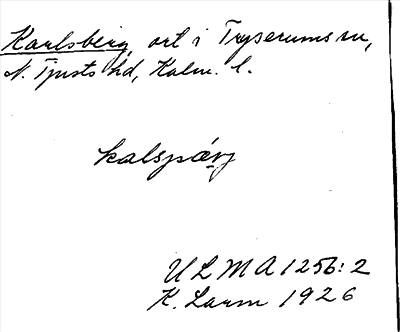 Karlsberg, ort i Tryserums sn,
N. Tjusts hd, Kalm. l.
kalspærj
ULMA 1256:2
K. Larm 1926